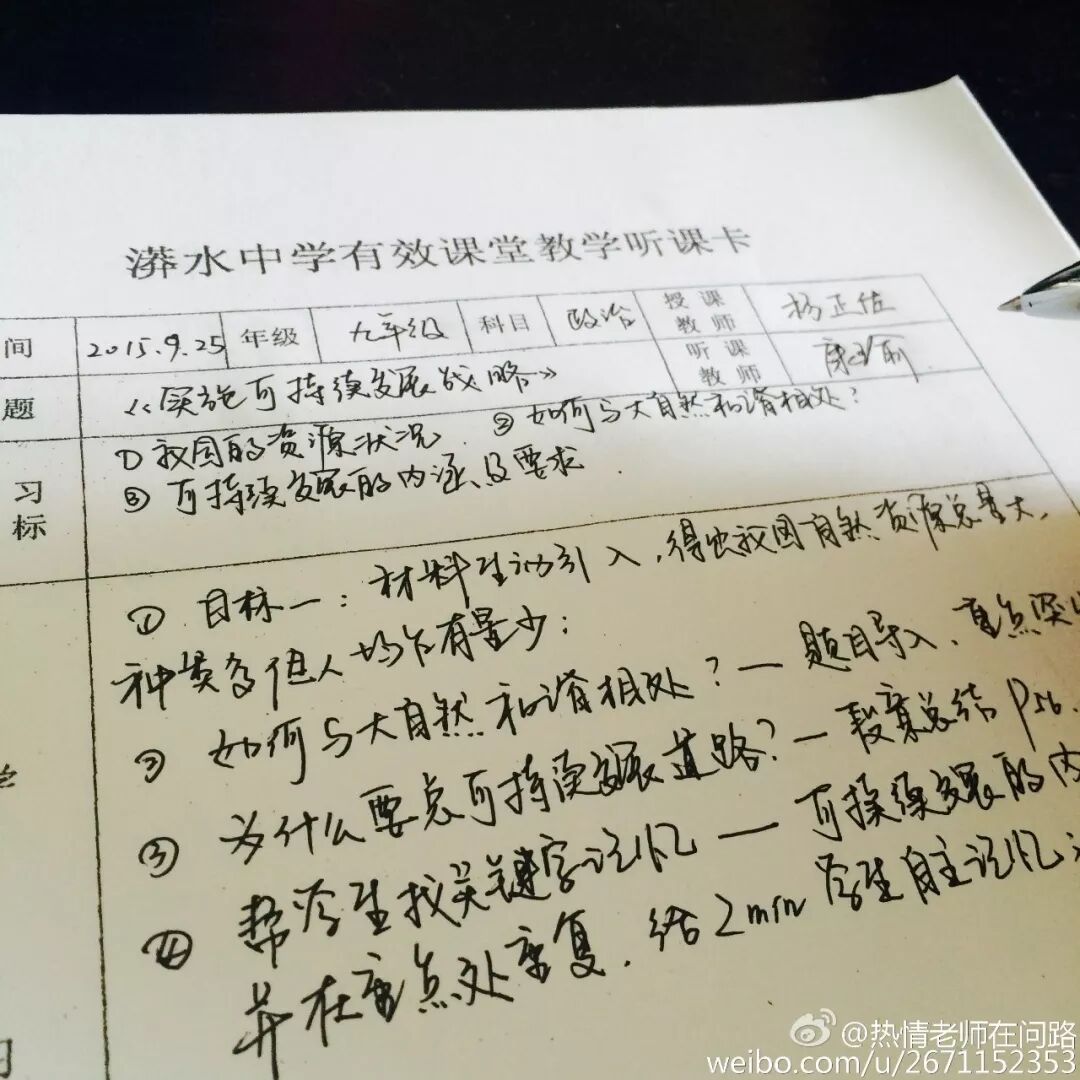 漭水中学有效课堂教学听课卡
间 2015.9.25 年级 九年级 科目 政治 授课教师 杨正位
听课教师
题 《实施可持续发展战略》
习标 ①我国的资源状况 ②如何与大自然和谐相处?
③可持续发展的内涵及要求.
① 目标一:材料生动引入,得出我国自然资源总量大,
种类多但人均占有量少;
② 如何与大自然和谐相处?—题目导入、重点突出
③ 为什么要走可持续发展道路?—段落总结 P56.
④ 帮学生找关键字记忆—可持续发展的内
并在重点处重复.给2min学生自主记忆
习
@热情老师在问路
weibo.com/u/2671152353